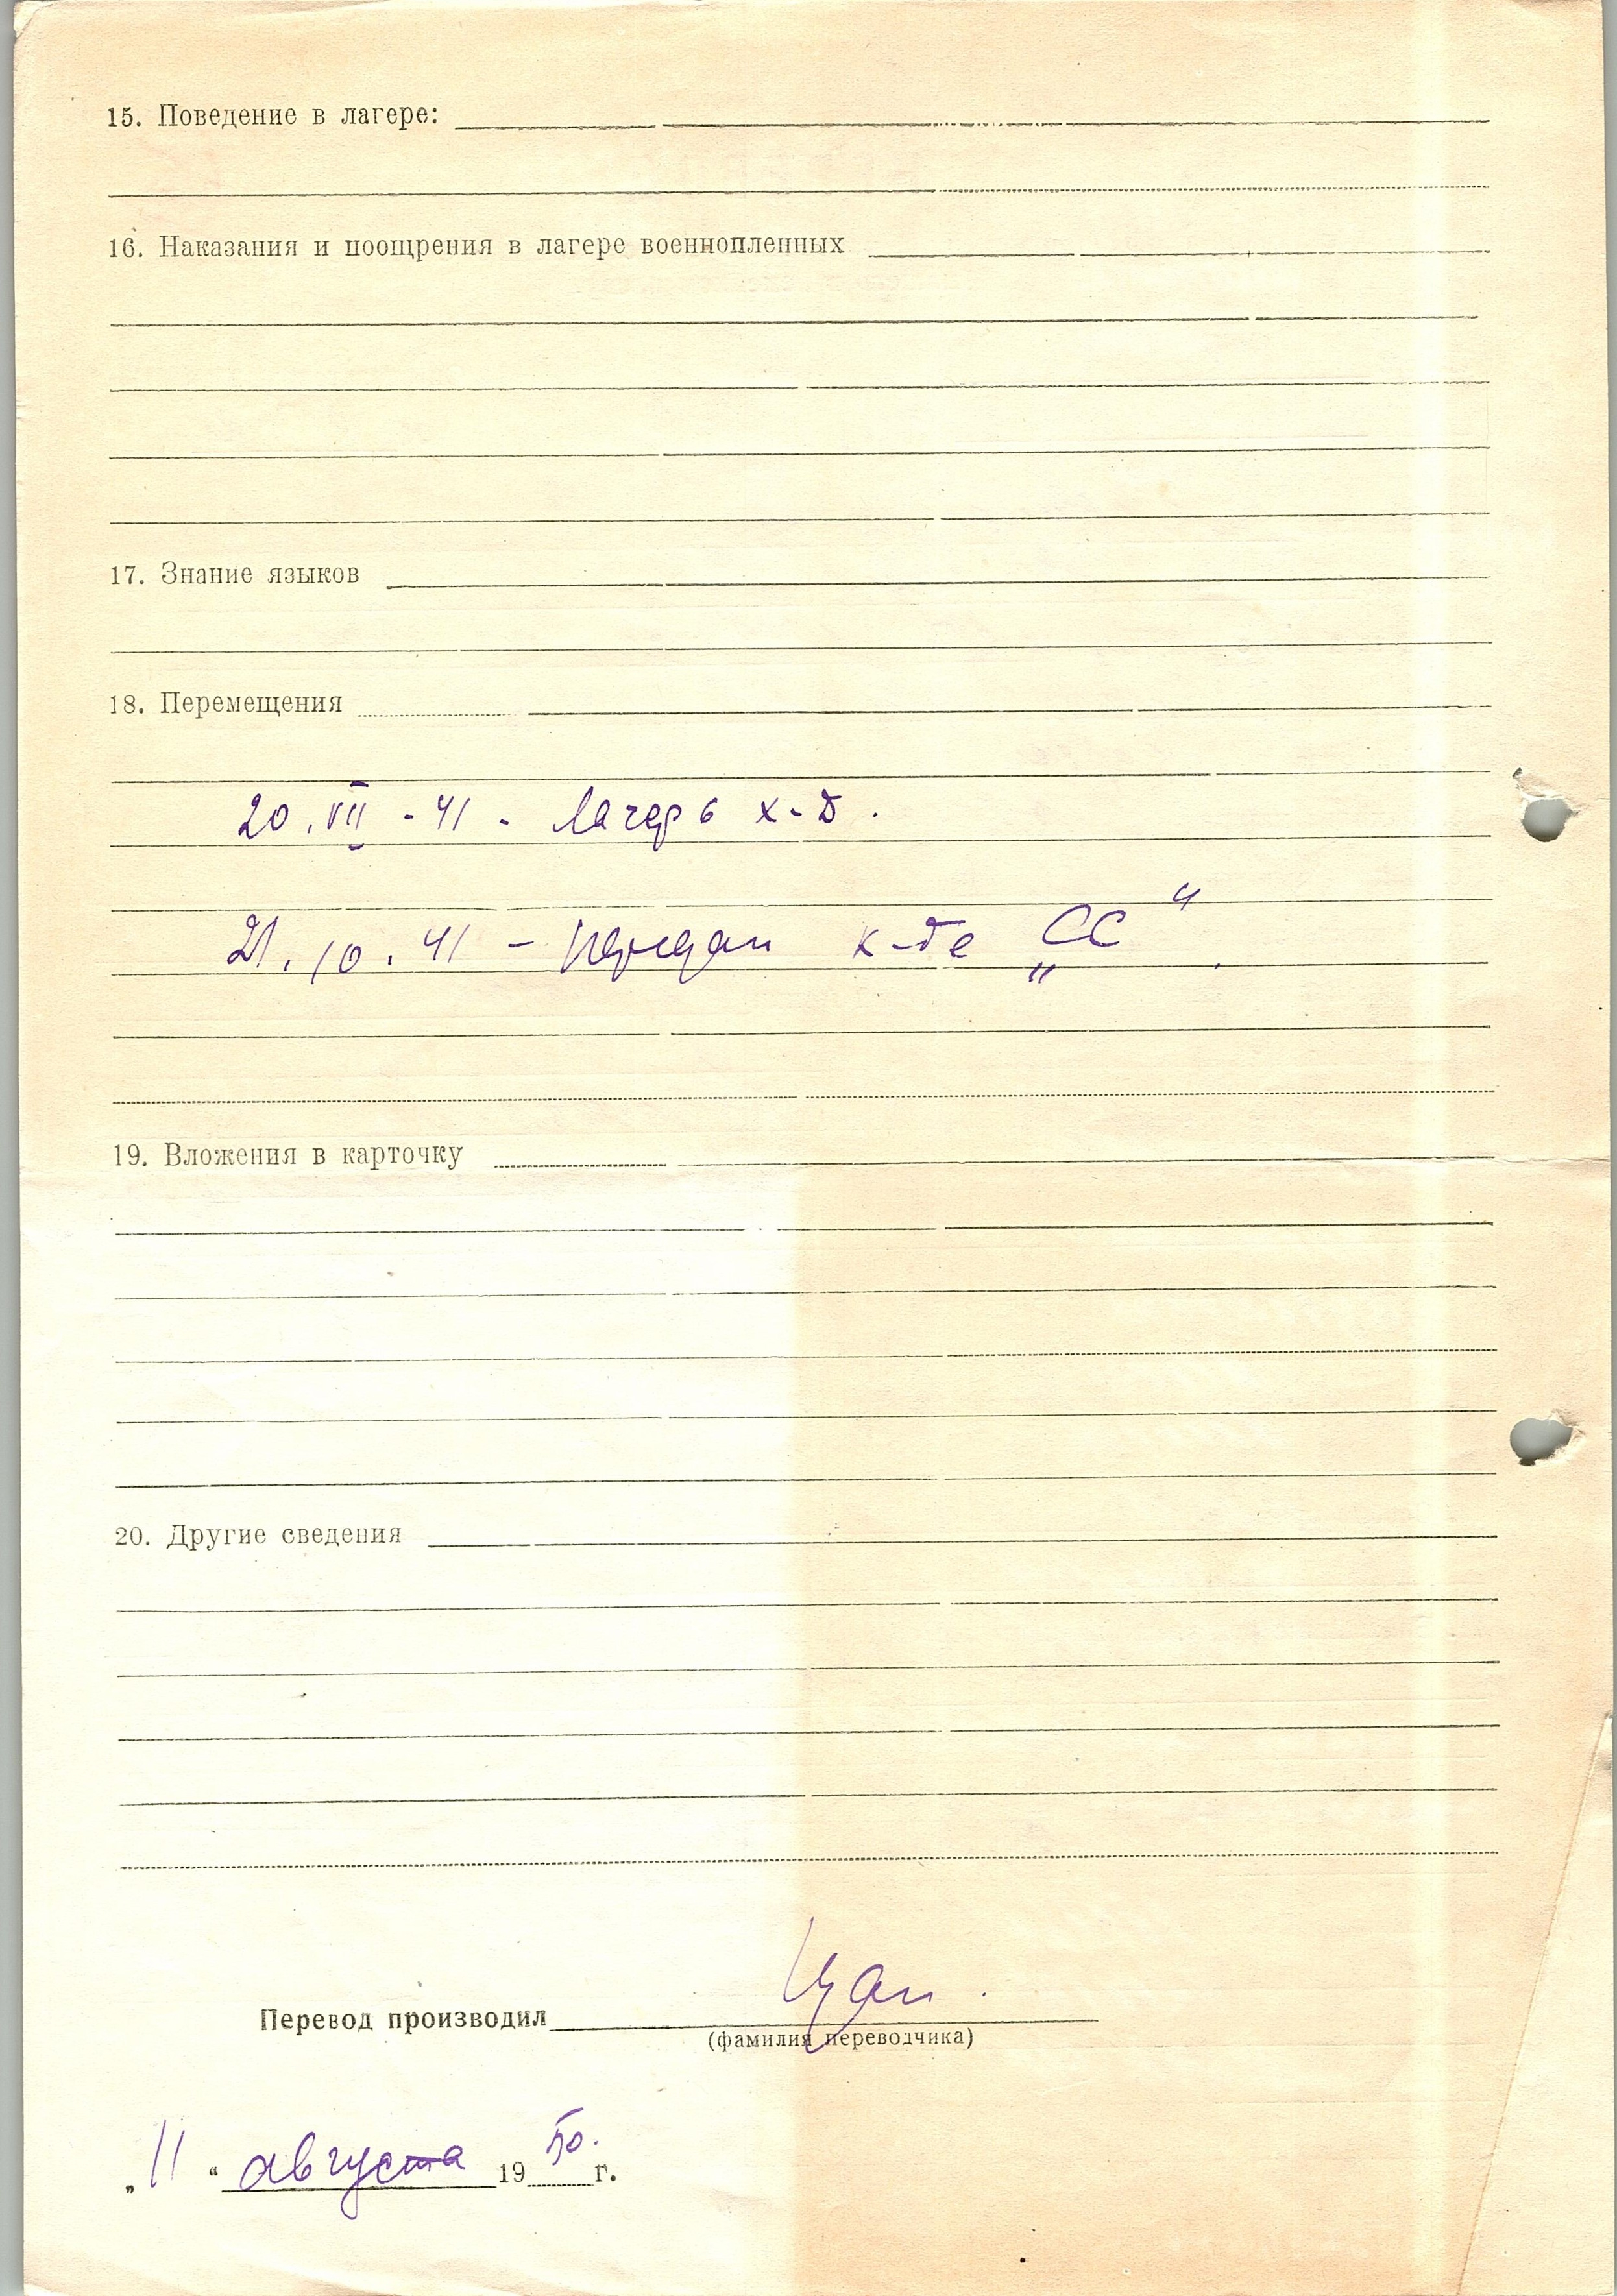 15. Поведение в лагере:
16. Наказания и поощрения в лагере военнопленных
17. Знание языков
18. Перемещения
20. VII - 41 - Лагерь X-D.
21. 10. 41 - передан к-де „СС“.
19. Вложения в карточку
20. Другие сведения
Перевод производил
(фамилия переводчика)
„11“ августа 1950. г.